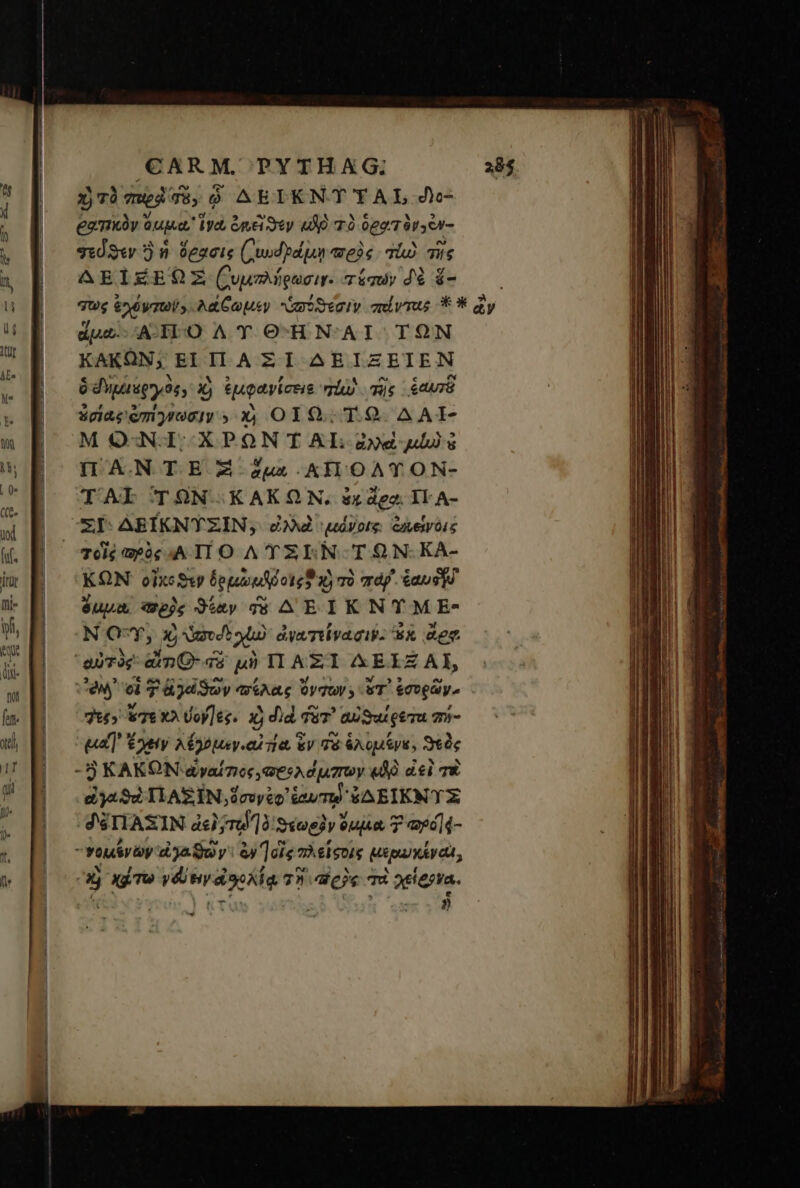 CARM. PYTHAG. 285
καὶ τὸ παρὰ τοῦ, ᾧ ΔΕΙΚΝΥΤΑΙ, διο-
ρατικὸν ὄμμα· ἵνα ἐκεῖθεν μὲν τὸ ὁρατὸν, ἐν-
τεῦθεν δὲ ἡ ὅρασις συνδράμῃ πρὸς τὴν τῆς
ΔΕΙΞΕΩΣ συμπλήρωσιν. τούτων δὲ οὕ-
τως ἐχόντων, λάβωμεν ὑπόθεσιν πάντας ** ἂν
ἅμα ΑΠΟΛΥΘΗΝΑΙ ΤΩΝ
ΚΑΚΩΝ, ΕΙ ΠΑΣΙ ΔΕΙΞΕΙΕΝ
ὁ δημιουργὸς, καὶ ἐμφανίσειε τὴν τῆς ἑαυτοῦ
οὐσίας ἐπίγνωσιν, καὶ ΟΙΩ ΤΩ ΔΑΙ-
ΜΟΝΙ ΧΡΩΝΤΑΙ. ἀλλὰ μὴν οὐ
ΠΑΝΤΕΣ ἅμα ΑΠΟΛΥΟΝ-
ΤΑΙ ΤΩΝ ΚΑΚΩΝ. οὐκ ἄρα ΠΑ-
ΣΙ ΔΕΙΚΝΥΣΙΝ, ἀλλὰ μόνοις ἐκείνοις
τοῖς πρὸς ΑΠΟΛΥΣΙΝ ΤΩΝ ΚΑ-
ΚΩΝ οἴκοθεν ὁρμωμένοις καὶ τὸ παρ' ἑαυτῶν
ὄμμα πρὸς θέαν τοῦ ΔΕΙΚΝΥΜΕ-
ΝΟΥ, καὶ ὑποδοχὴν ἀνατείνασιν. οὐκ ἄρα
αὐτὸς αἴτιος τοῦ μὴ ΠΑΣΙ ΔΕΙΞΑΙ,
ἀλλ' οἱ τῶν ἀγαθῶν πέλας ὄντων, οὔτ' ἐσορῶν-
τες, οὔτε κλύοντες. καὶ διὰ τοῦτ' αὐθαίρετα πή-
ματ' ἔχειν λέγομεν. αἰτία οὖν τοῦ ἑλομένου, θεὸς
δὲ ΚΑΚΩΝ ἀναίτιος, προλάμπων μὲν ἀεὶ τὰ
ἀγαθὰ ΠΑΣΙΝ, ὅσον ἐφ' ἑαυτῷ· οὐ ΔΕΙΚΝΥΣ
δὲ ΠΑΣΙΝ ἀεὶ, τῷ τὸ θεωρὸν ὄμμα τῶν προτε-
νομένων ἀγαθῶν ἐν τοῖς πλείστοις μεμυκέναι,
καὶ κάτω νεύειν ἀσχολίᾳ τῇ πρὸς τὰ χείρονα.
ἢ